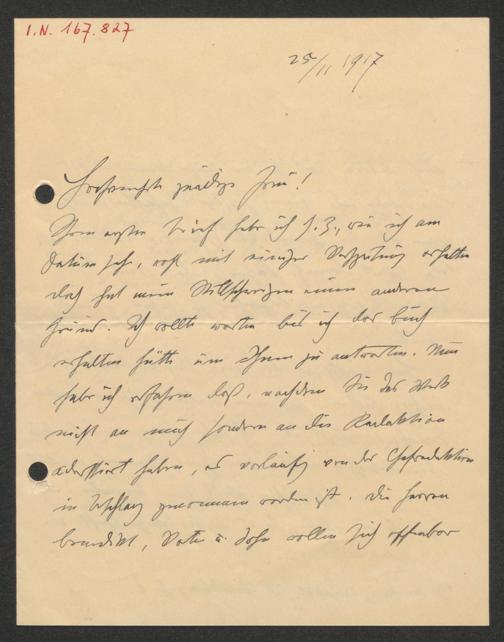 I.N. 167.827
25/11 1917
Hochverehrte gnädige Frau!
Ihren ersten Brief habe ich s. Z., wie ich am
Datum sehe, wohl mit einiger Verspätung erhalten
doch hat mein Stillschweigen einen anderen
Grund. Ich wollte warten bis ich das Buch
erhalten hätte um Ihnen zu antworten. Nun
habe ich erfahren daß, nachdem Sie das Werk
nicht an mich sondern an die Redaktion
adressiert haben, es vorläufig von der Chefredaktion
in Beschlag genommen worden ist. Die Herren
Benedikt, Vater u. Sohn wollen sich offenbar